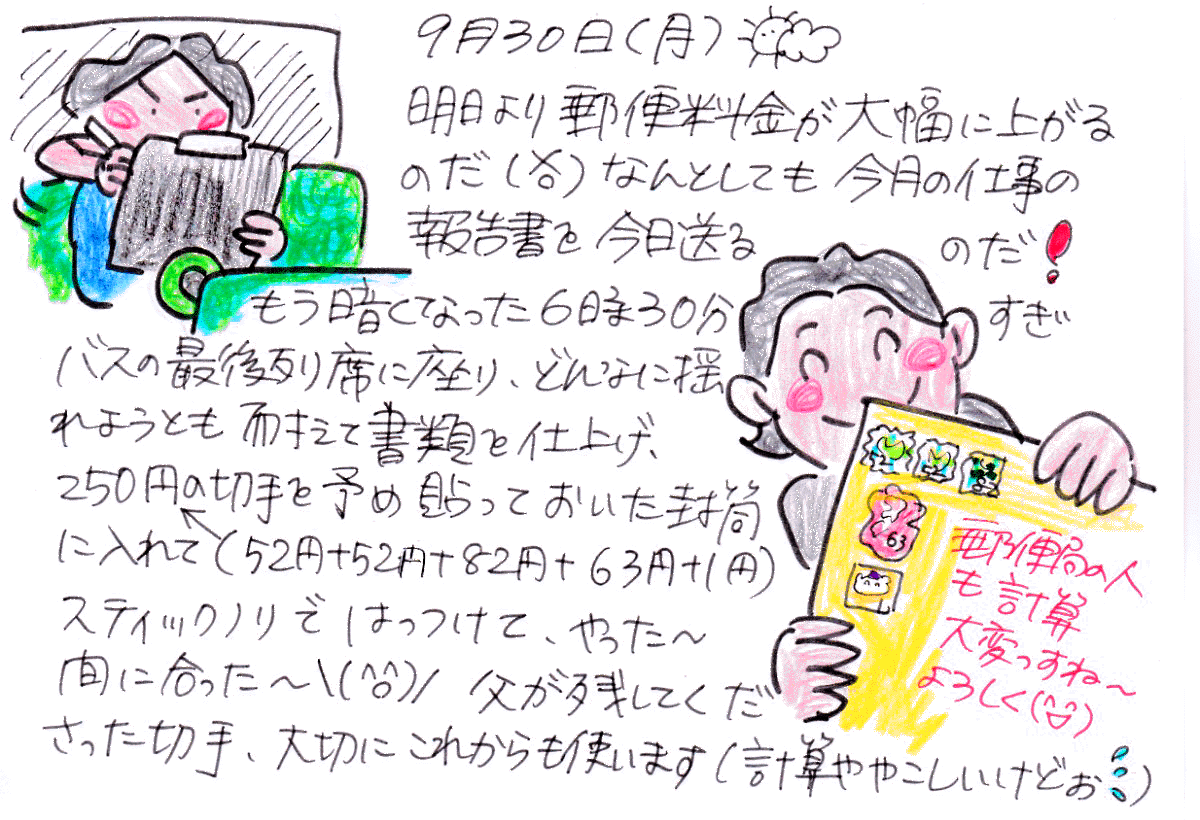 9月30日(月)
明日より郵便料金が大幅に上がる
のだ(>o<)なんとしても今月の仕事の
報告書を今日送るのだ!
もう暗くなった6時30分すぎ
バスの最後列席に座り、どんなに揺
れようとも耐えて書類を仕上げ、
250円の切手を予め貼っておいた封筒
に入れて(52円+52円+82円+63円+1円)
スティックノリではっつけて、やった〜
間に合った〜\(^o^)/ 父が残してくだ
さった切手、大切にこれからも使います(計算ややこしいけどぉ)
63
郵便局の人
も計算
大変っすね〜
よろしく(^o^)